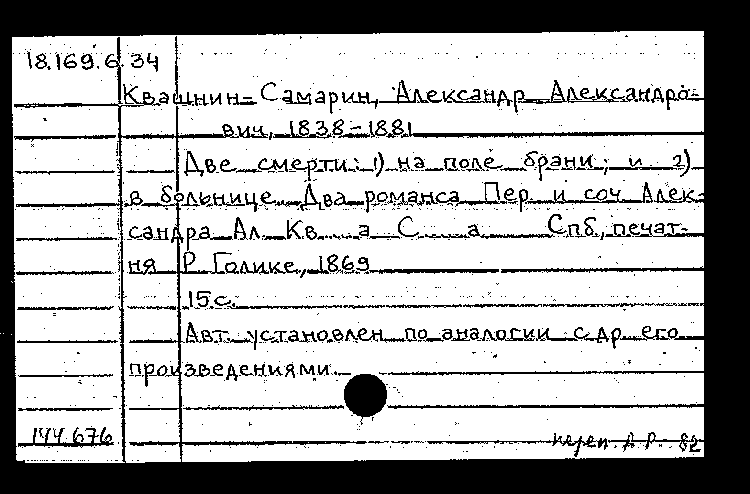 18.169.6.34
Квашнин-Самарин, Александр Александро-
вич, 1838-1881
Две смерти: 1) на поле брани; и 2)
в больнице. Два романса Пер. и соч. Алек-
сандра Ал. Кв....а С.....а. Спб., печат-
ня Р. Голике, 1869
15 с.
Авт. установлен по аналогии с др. его
произведениями.
144.676 переп. А.Р. 82